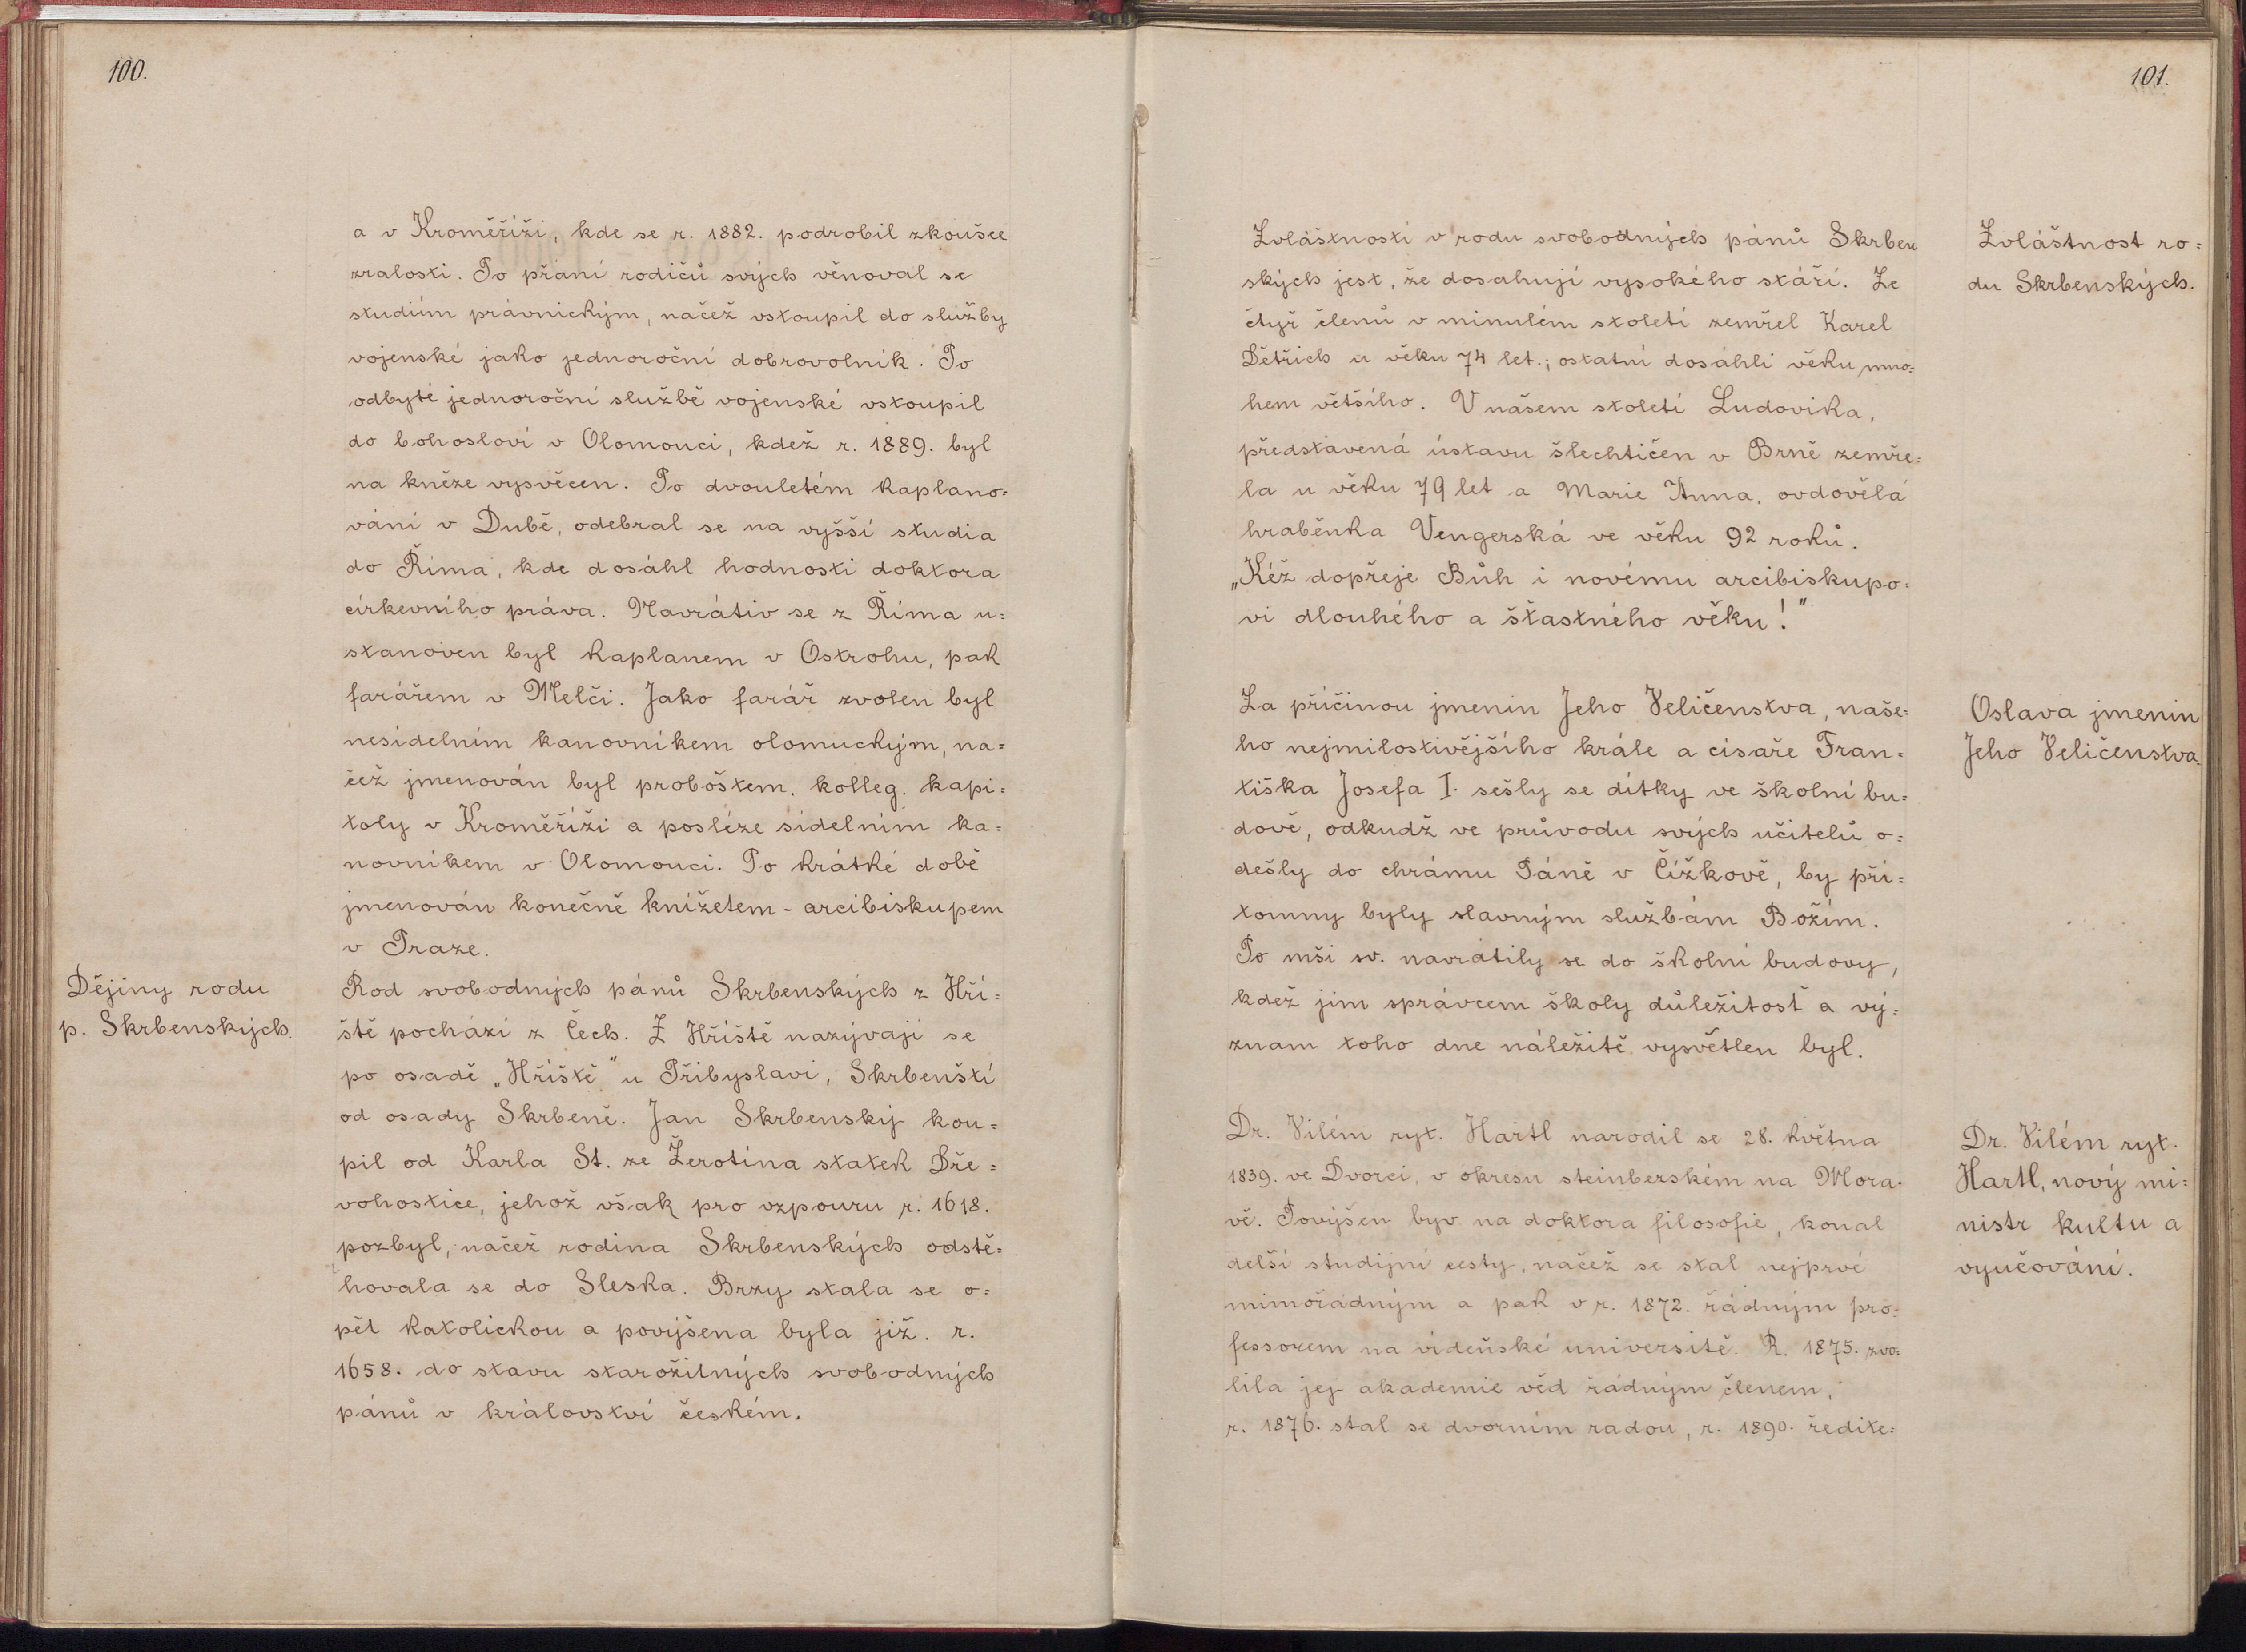 100.
a v Kroměříži, kde se r. 1882. podrobil zkoušce
zralosti. Po přání rodičů svých věnoval se
studiím právnickým, načež vstoupil do služby
vojenské jako jednoroční dobrovolník. Po
odbyté jednoroční službě vojenské vstoupil
do bohosloví v Olomouci, kdež r. 1889. byl
na kněze vysvěcen. Po dvouletém kaplano=
vání v Dubě, odebral se na vyšší studia
do Říma, kde dosáhl hodnosti doktora
církevního práva. Navrátiv se z Říma u=
stanoven byl kaplanem v Ostrohu, pak
farářem v Melči. Jako farář zvolen byl
nesídelním kanovníkem olomuckým, na=
čež jmenován byl proboštem. kolleg. kapi=
toly v Kroměříži a posléze sídelním ka=
novníkem v Olomouci. Po krátké době
jmenován konečně knížetem - arcibiskupem
v Praze.
Dějiny rodu
p. Skrbenských.
Rod svobodných pánů Skrbenských z Hří=
ště pochází z Čech. Z Hříště nazývají se
po osadě „Hříště" u Přibyslavi, Skrbenští
od osady Skrbeně. Jan Skrbenský kou=
pil od Karla St. ze Žerotína statek Dře=
vohostice, jehož však pro vzpouru r. 1618.
pozbyl, načež rodina Skrbenských odstě=
hovala se do Sleska. Brzy stala se o=
pět katolickou a povýšena byla již. r.
1658. do stavu starožitných svobodných
pánů v království českém.
101.
Zvláštností v rodu svobodných pánů Skrben
ských jest, že dosahují vysokého stáří. Ze
čtyř členů v minulém století zemřel Karel
Dětřich u věku 74 let.; ostatní dosáhli věku mno=
hem většího. V našem století Ludovika,
představená ústavu šlechtičen v Brně zemře=
la u věku 79 let a Marie Anna, ovdovělá
hraběnka Vengerská ve věku 92 roků.
„Kéž dopřeje Bůh i novému arcibiskupo=
vi dlouhého a šťastného věku!"
Zvláštnost ro=
du Skrbenských.
Za příčinou jmenin Jeho Veličenstva, naše=
ho nejmilostivějšího krále a císaře Fran=
tiška Josefa I. sešly se dítky ve školní bu=
dově, odkudž ve průvodu svých učitelů o=
dešly do chrámu Páně v Čížkově, by pří=
tomny byly slavným službám Božím.
Po mši sv. navrátily se do školní budovy,
kdež jim správcem školy důležitost a vý=
znam toho dne náležitě vysvětlen byl.
Oslava jmenin
Jeho Veličenstva.
Dr. Vilém ryt. Hartl narodil se 28. května
1839. ve Dvorci, v okresu steinberském na Mora=
vě. Povýšen byv na doktora filosofie, konal
delší studijní cesty, načež se stal nejprvé
mimořádným a pak v r. 1872. řádným pro=
fessorem na vídeňské universitě. R. 1875. zvo=
lila jej akademie věd řádným členem,
r. 1876. stal se dvorním radou, r. 1890. ředite=
Dr. Vilém ryt.
Hartl, nový mi=
nistr kultu a
vyučování.